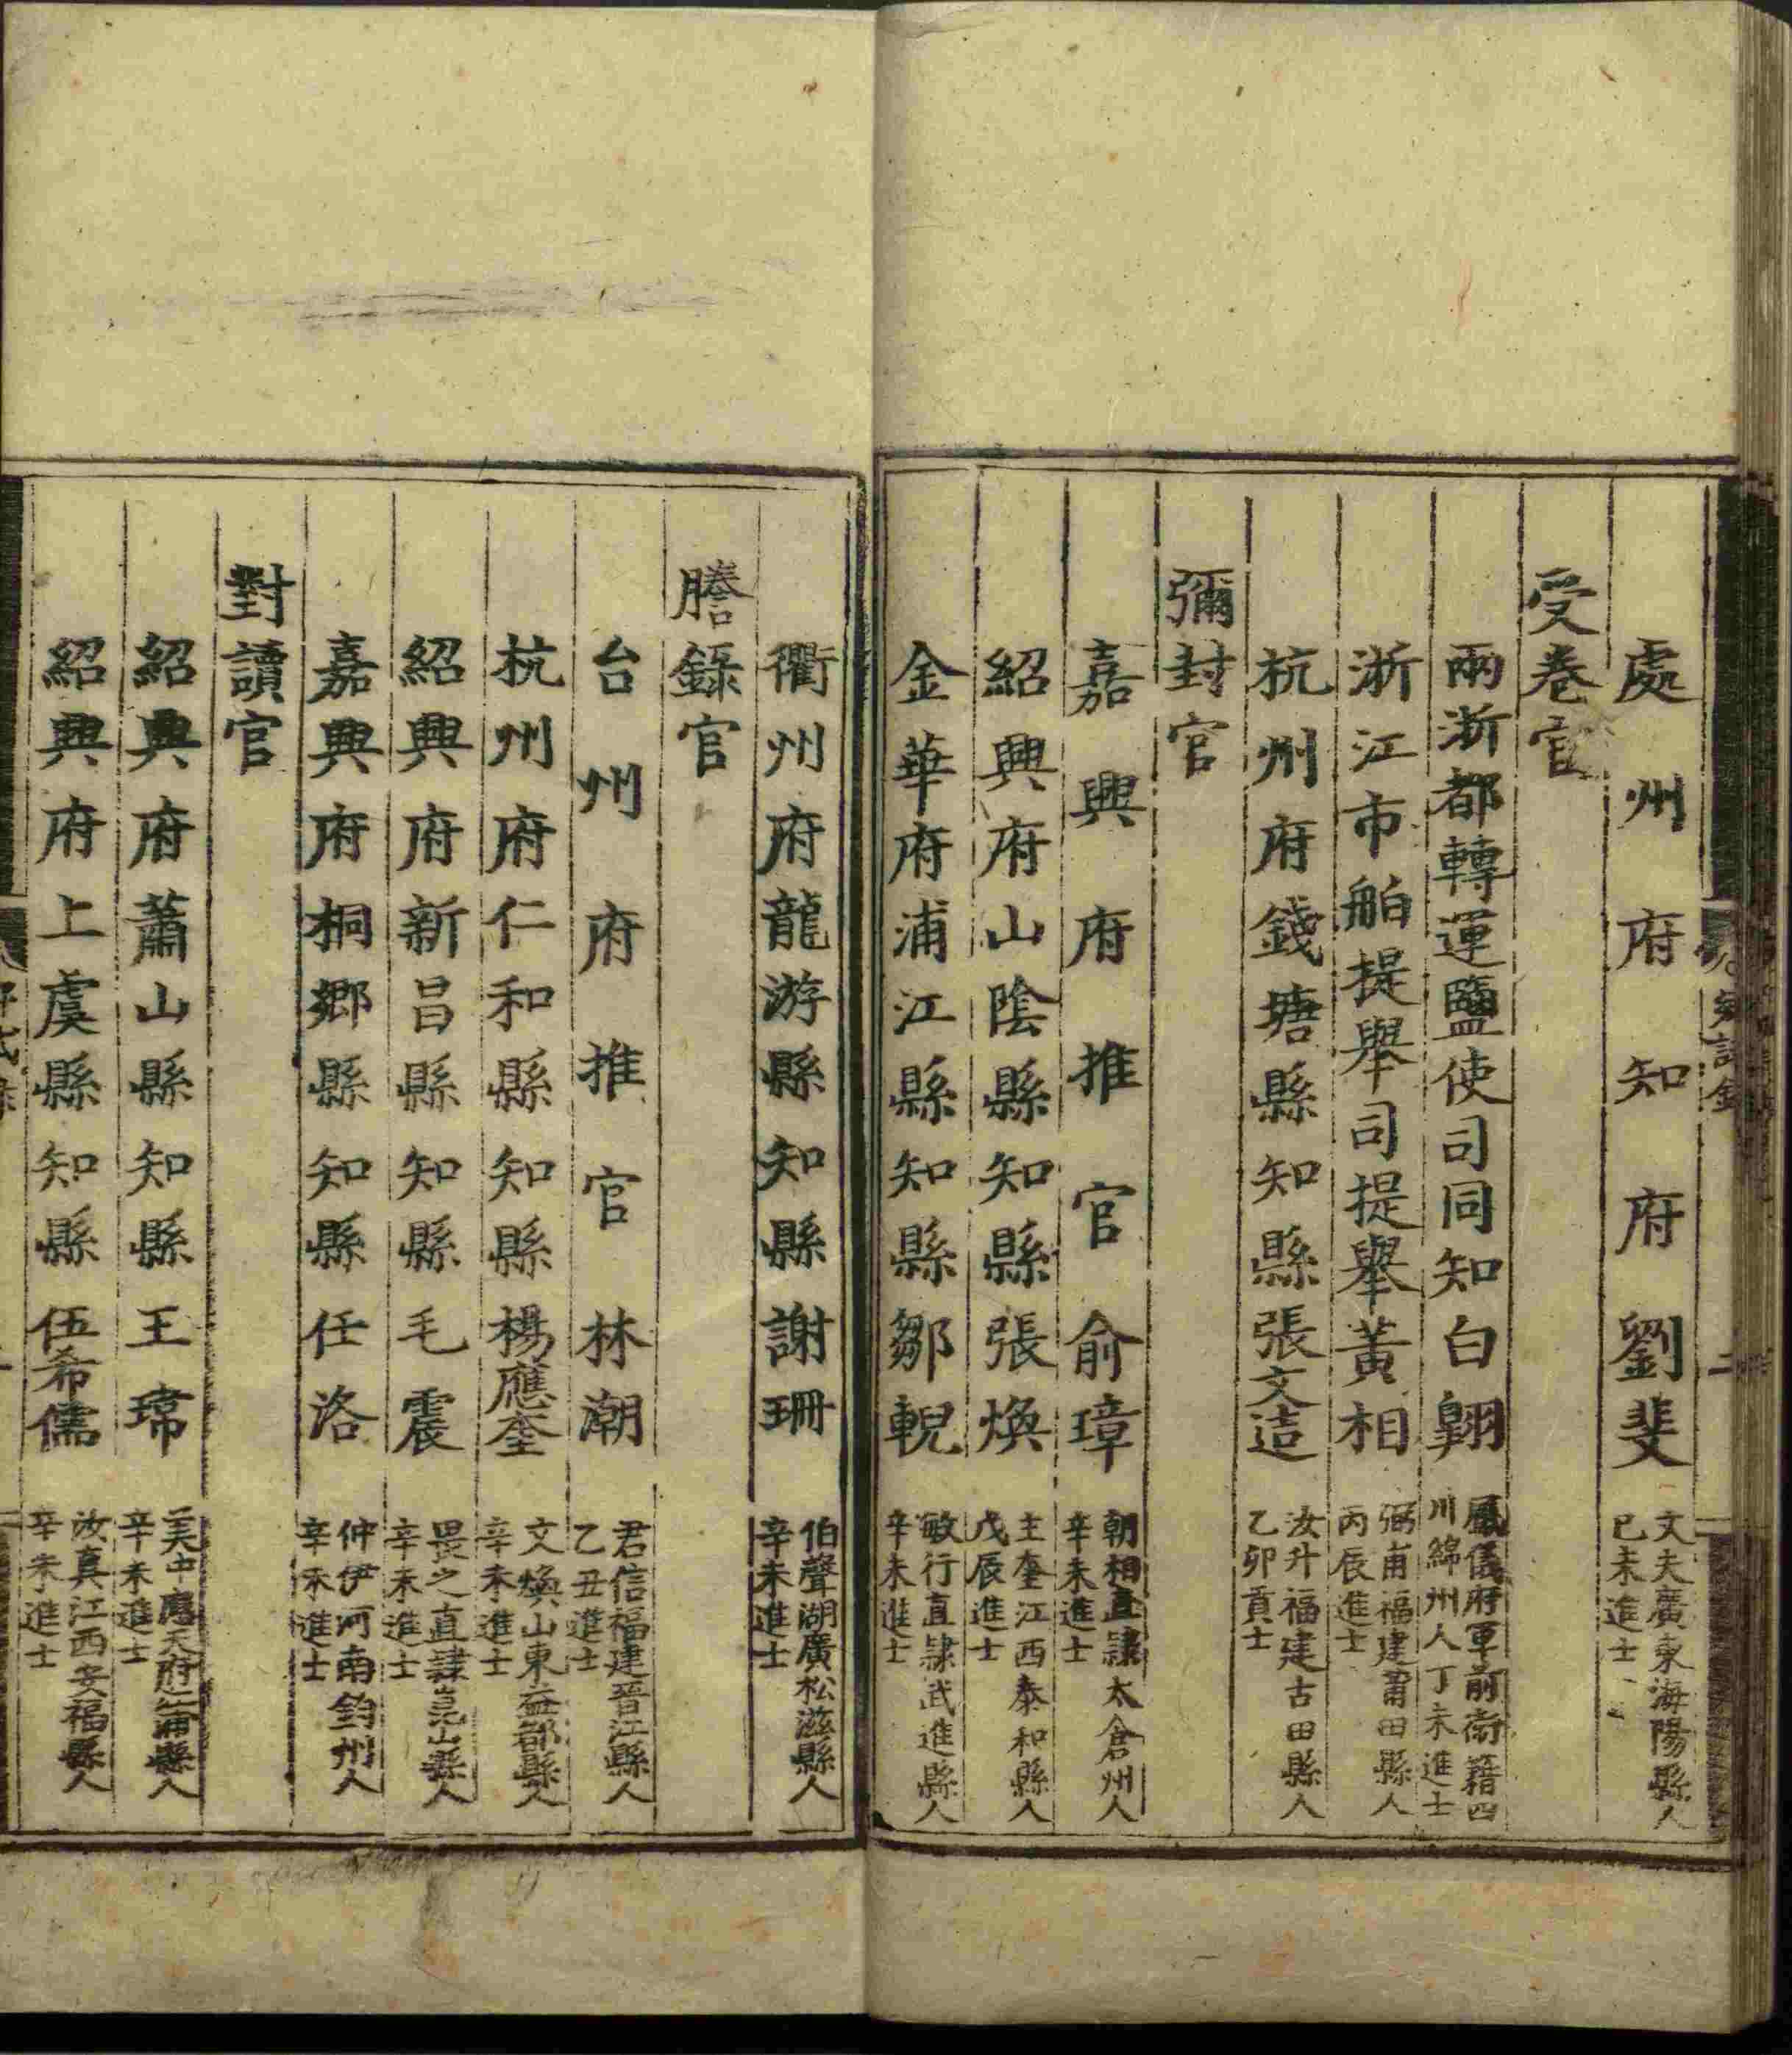 處州府知府劉斐 文夫廣東海陽縣人己未進士
受卷官
兩浙都轉運鹽使司同知白翱 鳳儀府軍前衛籍四川綿州人丁未進士
浙江市舶提舉司提舉黃相 弼甫福建莆田縣人丙辰進士
杭州府錢塘縣知縣張文造 汝升福建古田縣人乙卯貢士
彌封官
嘉興府推官俞璋 朝相直隸太倉州人辛未進士
紹興府山陰縣知縣張煥 主奎江西泰和縣人戊辰進士
金華府浦江縣知縣鄒輗 敏行直隸武進縣人辛未進士
衢州府龍游縣知縣謝珊 伯聲湖廣松滋縣人辛未進士
謄錄官
台州府推官林潮 君信福建晉江縣人乙丑進士
杭州府仁和縣知縣楊應奎 文煥山東益都縣人辛未進士
紹興府新昌縣知縣毛震 畏之直隸崑山縣人辛未進士
嘉興府桐鄉縣知縣任洛 仲伊河南鈞州人辛未進士
對讀官
紹興府蕭山縣知縣王瑋 美中應天府江浦縣人辛未進士
紹興府上虞縣知縣伍希儒 汝真江西安福縣人辛未進士